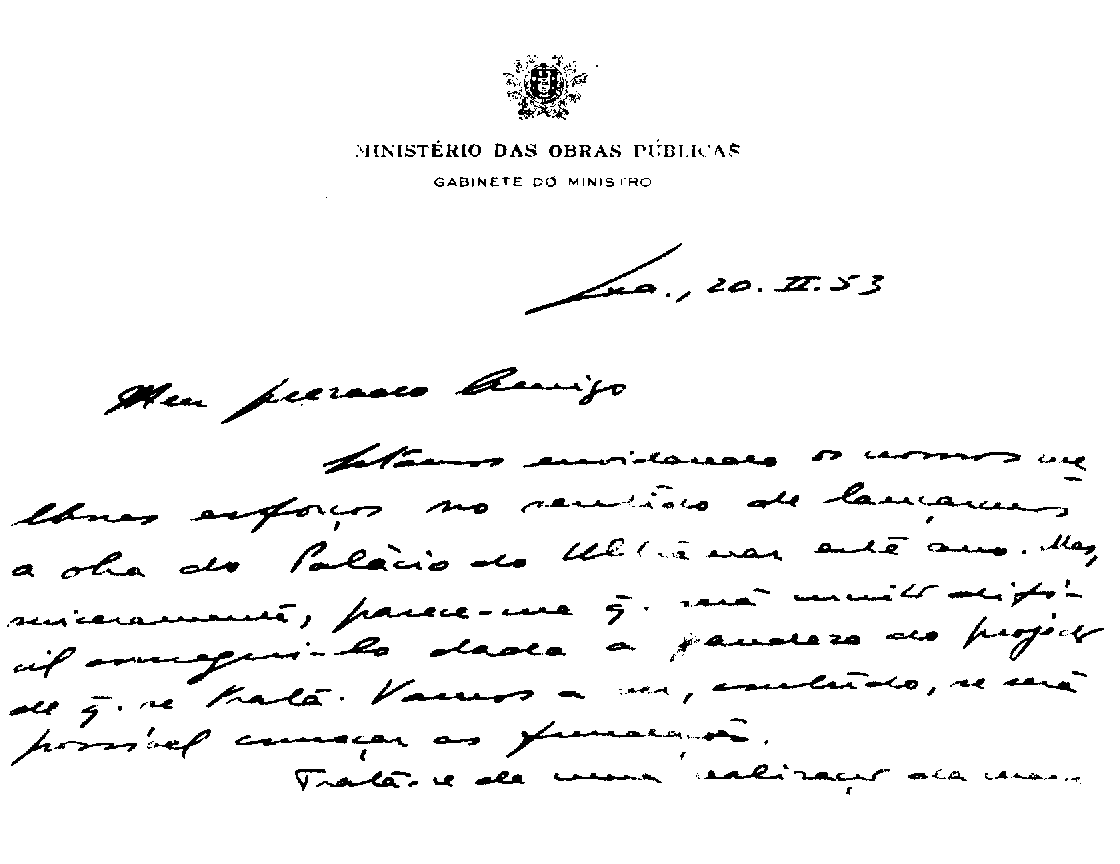 MINISTÉRIO DAS OBRAS PÚBLICAS
GABINETE DO MINISTRO
Lxa., 20.II.53
Meu prezado Amigo
Estamos envidando os nossos me
lhores esforços no sentido de lançarmos
a obra do Palácio do Ultramar este ano. Mas,
sinceramente, parece-me q. será muito difí-
cil consegui-lo dada a grandeza do projecto
de q. se trata. Vamos a ver, contudo, se será
possível começar as fundações.
Trata-se de uma realização da